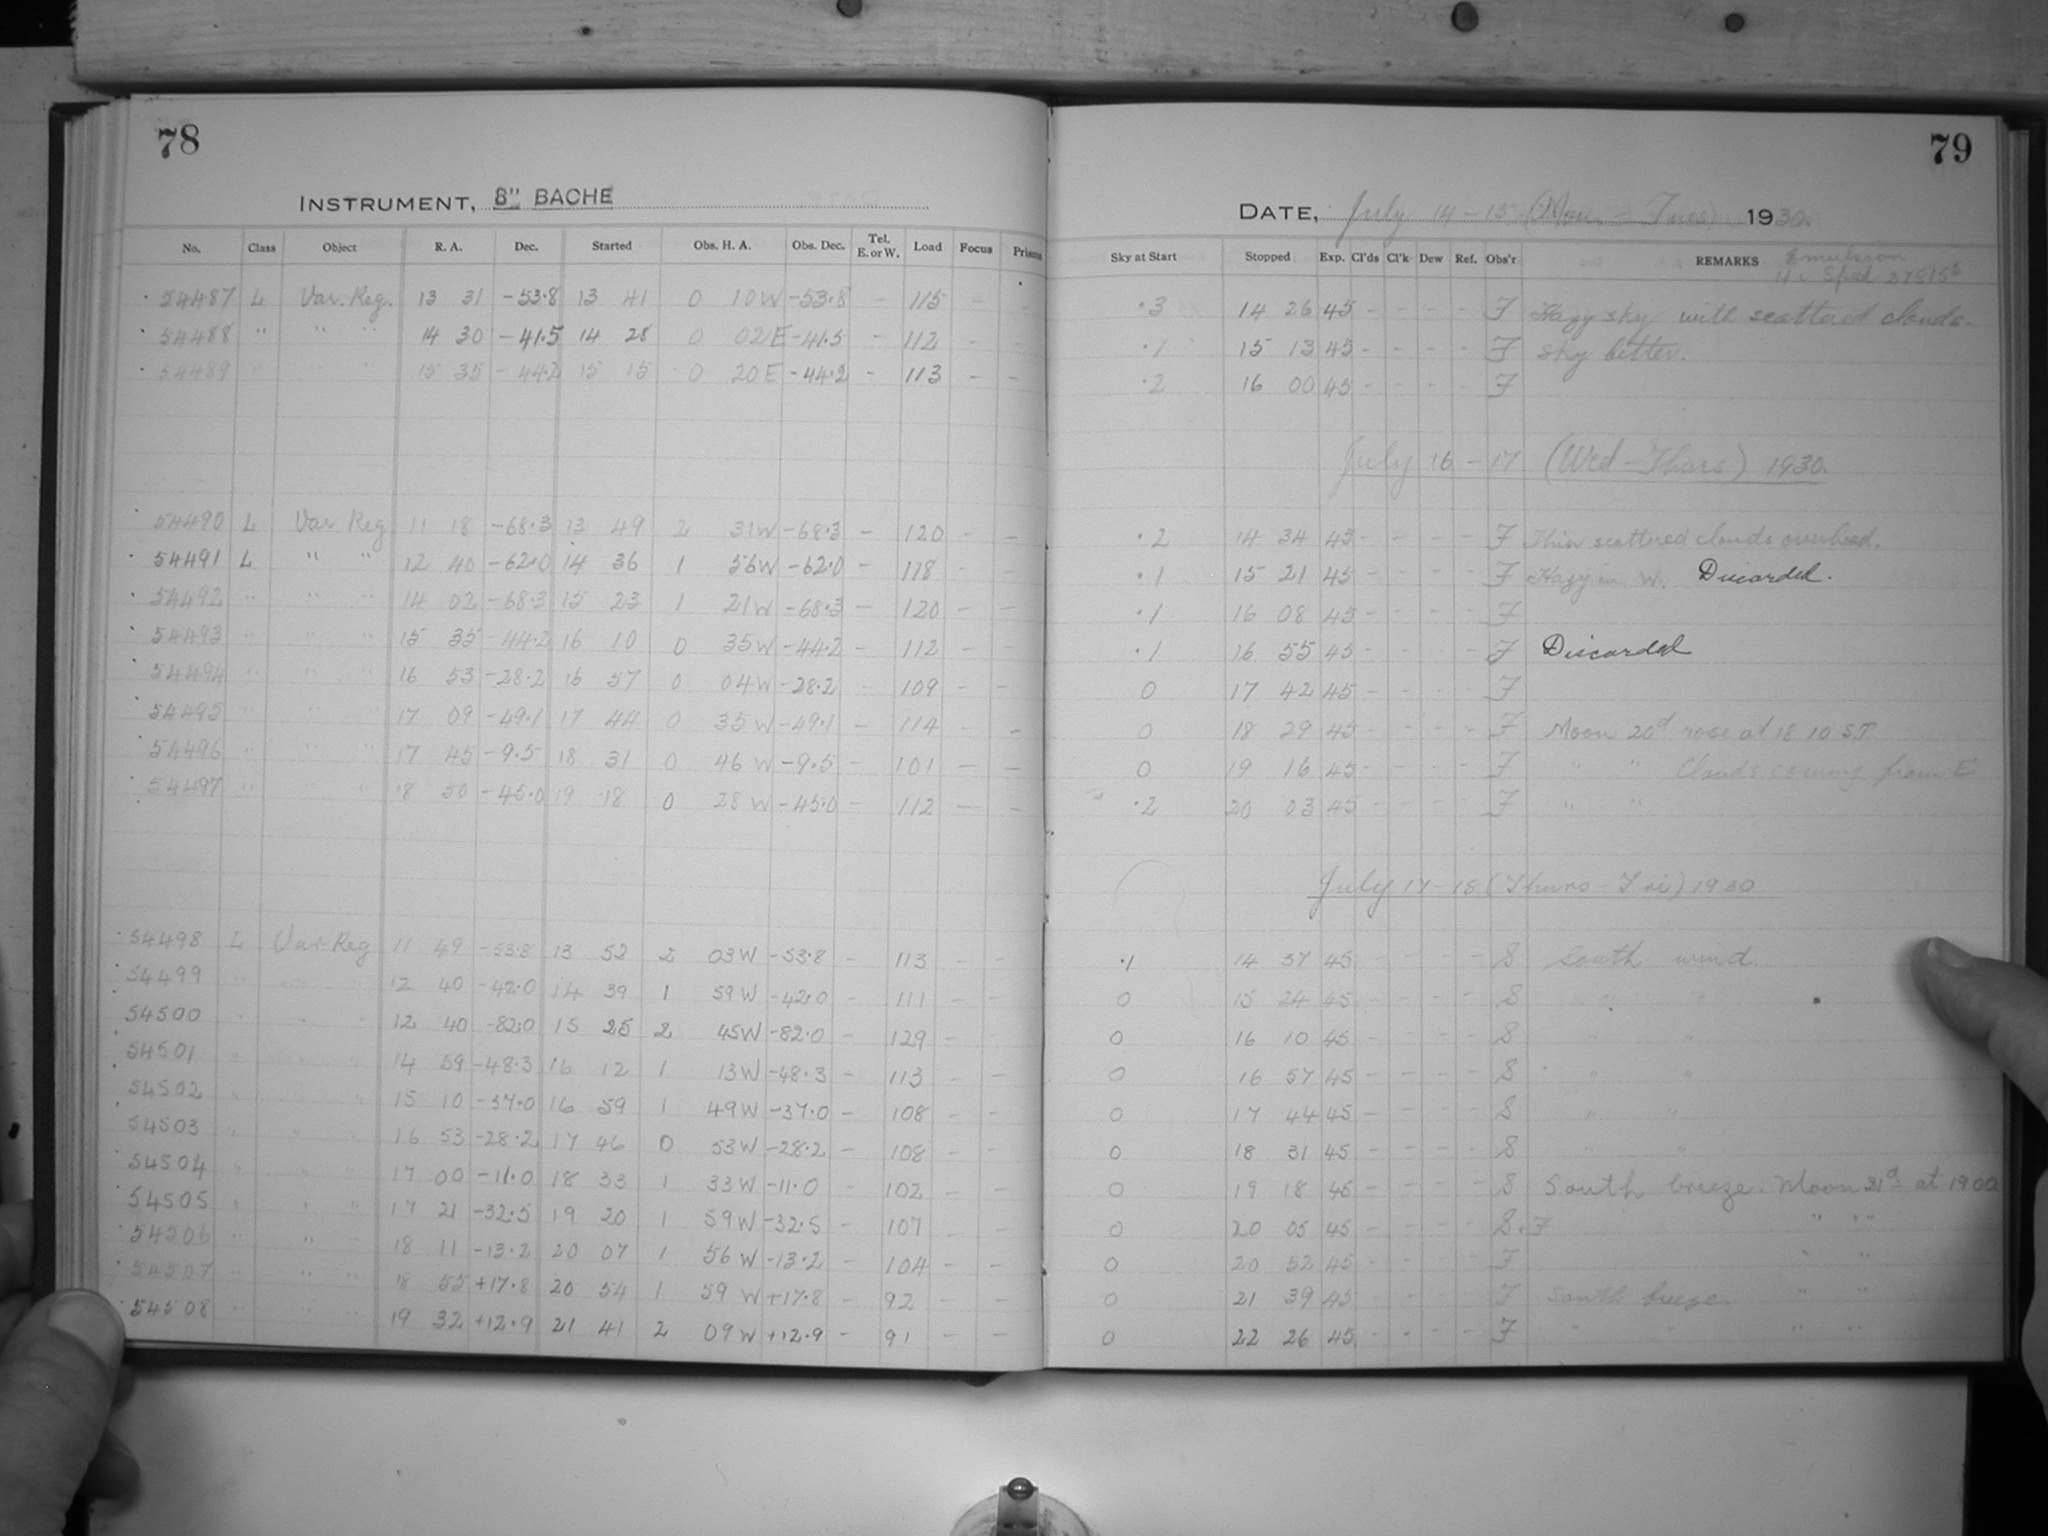 78
INSTRUMENT, 8" BACHE
No. Class Object R. A. Dec. Started Obs. H. A. Obs. Dec. Tel. E. or W. Load Focus Prisms
54487 L Var. Reg. 13 31 -53.8 13 41 0 10 W -53.8 - 115 - -
54488 " " " 14 30 -41.5 14 28 0 02 E -41.5 - 112 - -
54489 " " " 15 35 -44.2 15 15 0 20 E -44.2 - 113 - -
54490 L Var Reg 11 18 -68.3 13 49 2 31 W -68.3 - 120 - -
54491 L " " 12 40 -62.0 14 36 1 56 W -62.0 - 118 - -
54492 " " " 14 02 -68.3 15 23 1 21 W -68.3 - 120 - -
54493 " " " 15 35 -44.2 16 10 0 35 W -44.2 - 112 - -
54494 " " " 16 53 -28.2 16 57 0 04 W -28.2 - 109 - -
54495 " " " 17 09 -49.1 17 44 0 35 W -49.1 - 114 - -
54496 " " " 17 45 -9.5 18 31 0 46 W -9.5 - 101 - -
54497 " " " 18 50 -45.0 19 18 0 28 W -45.0 - 112 - -
54498 L Var Reg 11 49 -53.8 13 52 2 03 W -53.8 - 113 - -
54499 " " " 12 40 -42.0 14 39 1 59 W -42.0 - 111 - -
54500 " " " 12 40 -82.0 15 25 2 45 W -82.0 - 129 - -
54501 " " " 14 59 -48.3 16 12 1 13 W -48.3 - 113 - -
54502 " " " 15 10 -37.0 16 59 1 49 W -37.0 - 108 - -
54503 " " " 16 53 -28.2 17 46 0 53 W -28.2 - 108 - -
54504 " " " 17 00 -11.0 18 33 1 33 W -11.0 - 102 - -
54505 " " " 17 21 -32.5 19 20 1 59 W -32.5 - 107 - -
54506 " " " 18 11 -13.2 20 07 1 56 W -13.2 - 104 - -
54507 " " " 18 55 +17.8 20 54 1 59 W +17.8 - 92 - -
54508 " " " 19 32 +12.9 21 41 2 09 W +12.9 - 91 - -
79
DATE, July 14-15 (Mon - Tues) 1930.
Sky at Start Stopped Exp. Cl'ds Cl'k Dew Ref. Obs'r REMARKS Emulsion
Speed
.3 14 26 45 - - - - F Hazy sky with scattered clouds.
.1 15 13 45 - - - - F Sky better.
.2 16 00 45 - - - - F
July 16-17 (Wed-Thurs) 1930.
.2 14 34 45 - - - - F Thin scattered clouds overhead.
.1 15 21 45 - - - - F Hazy in W. Discarded.
.1 16 08 45 - - - - F
.1 16 55 45 - - - - F Discarded
0 17 42 45 - - - - F
0 18 29 45 - - - - F Moon 20d rose at 18 10 S.T
0 19 16 45 - - - - F " " Clouds coming from E
.2 20 03 45 - - - - F " "
July 17-18 (Thurs-Fri) 1930
.1 14 37 45 - - - - S South wind.
0 15 24 45 - - - - S " "
0 16 10 45 - - - - S " "
0 16 57 45 - - - - S " "
0 17 44 45 - - - - S " "
0 18 31 45 - - - - S " "
0 19 18 45 - - - - S South breeze. Moon 21d at 1900
0 20 05 45 - - - - S & F " "
0 20 52 45 - - - - F " "
0 21 39 45 - - - - F South breeze. " "
0 22 26 45 - - - - F " " "